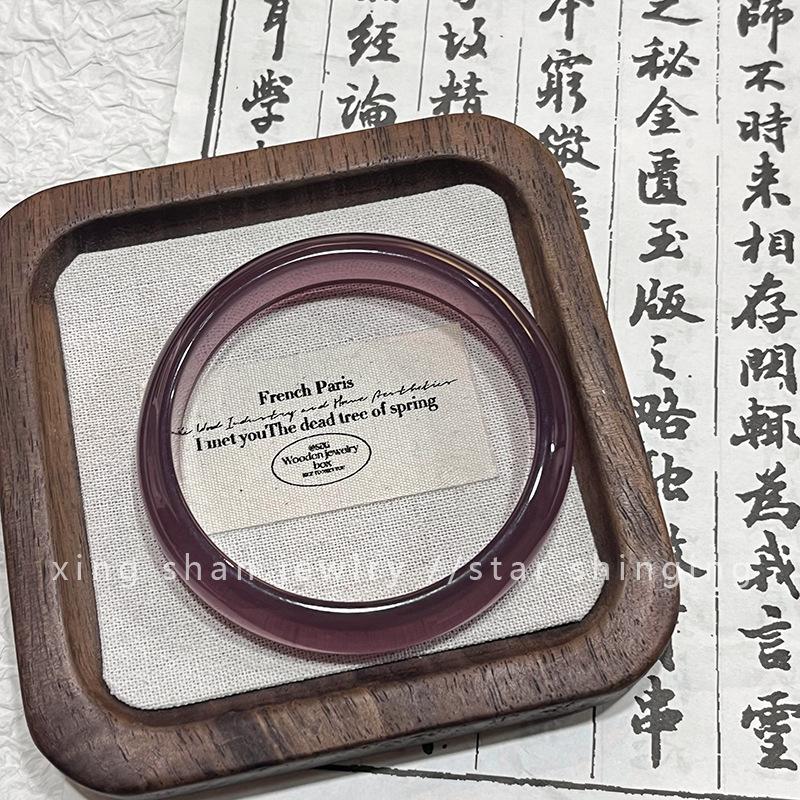 師不時来相存問輒為我言靈
之秘金匱玉版之略
串
本窮微
墳精
經論
耳學
French Paris
Wood Industry and Home Aesthetics
I met youThe dead tree of spring
Wooden jewelry
box
NICE TO MEET YOU
xing shan jewlry //star shinging